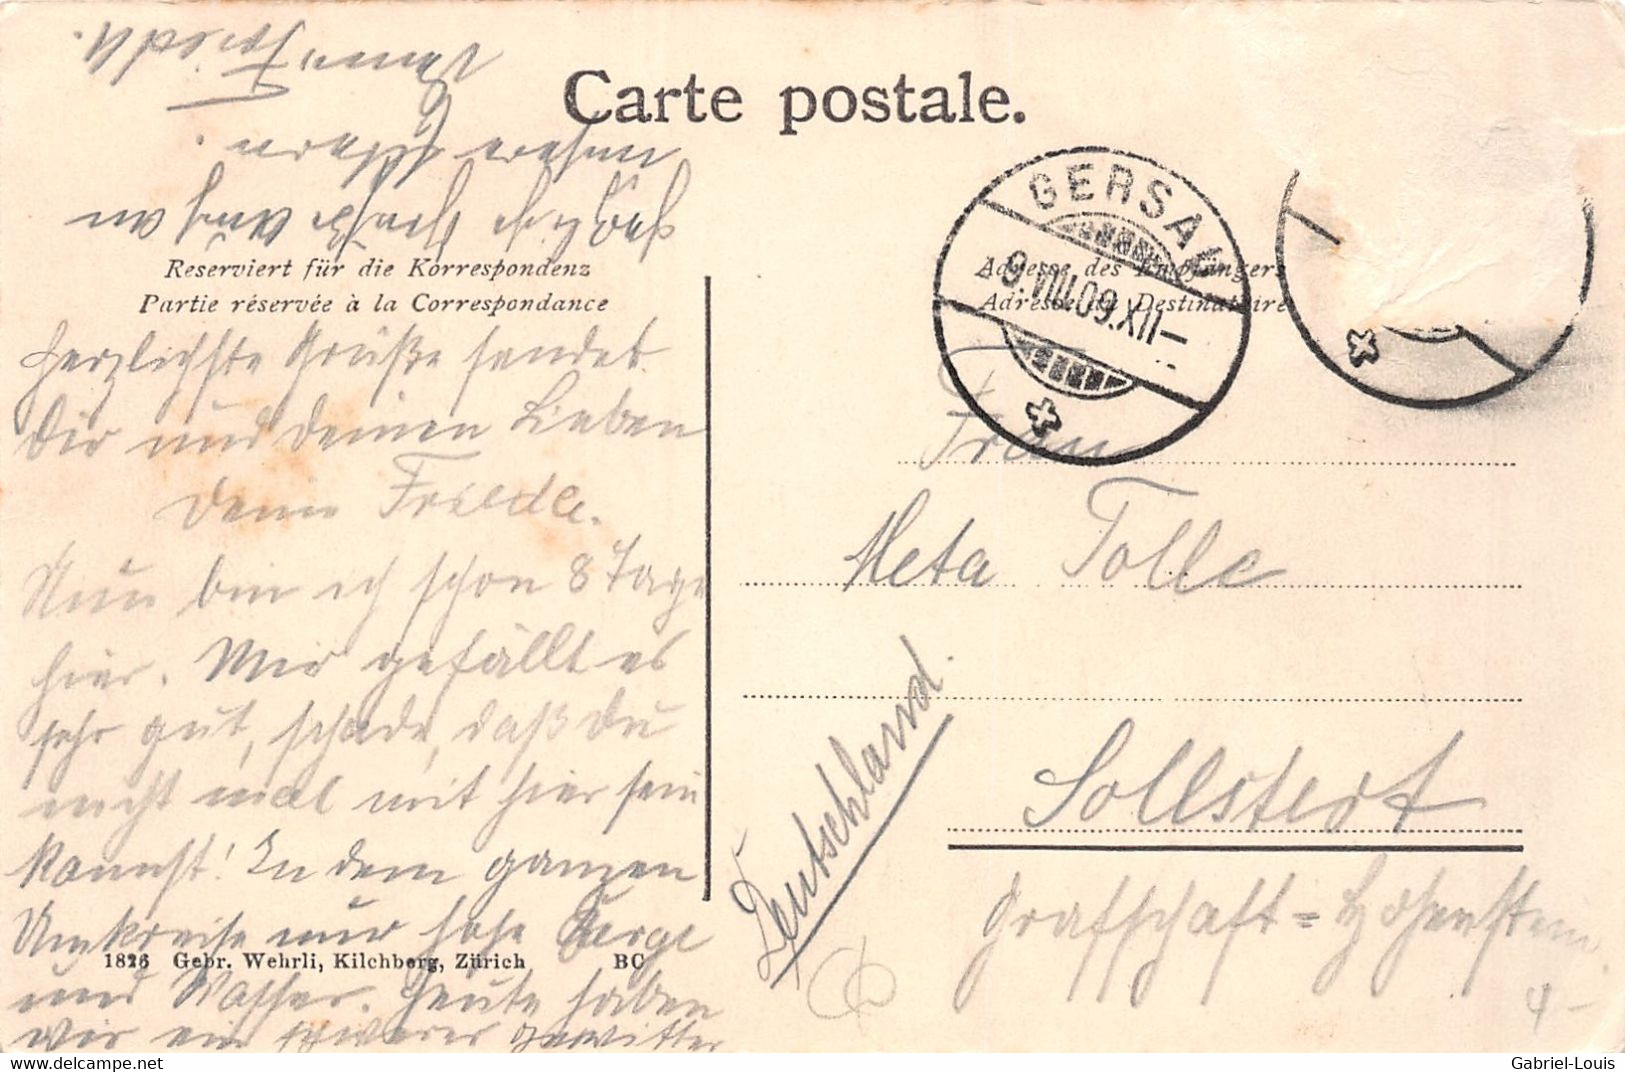 Carte postale.
GERSAU
9.VIII.09.XII
Reserviert für die Korrespondenz
Partie réservée à la Correspondance
Adresse des Empfängers
Adresse du Destinataire
Herzlichste Grüße sendet
Dir und deinen Lieben
Deine Frieda.
Nun bin ich schon 8 Tage
hier. Mir gefällt es
sehr gut, schade, daß Du
nicht mal mit hier sein
kannst! In dem ganzen
Umkreise nur hohe Berge
und Wasser. Heute haben
wir ein schweres Gewitter
Frau
Meta Tolle
Sollstedt
Grafschaft=Hohenstein
Deutschland
1826 Gebr. Wehrli, Kilchberg, Zürich BC
4-
www.delcampe.net
Gabriel-Louis